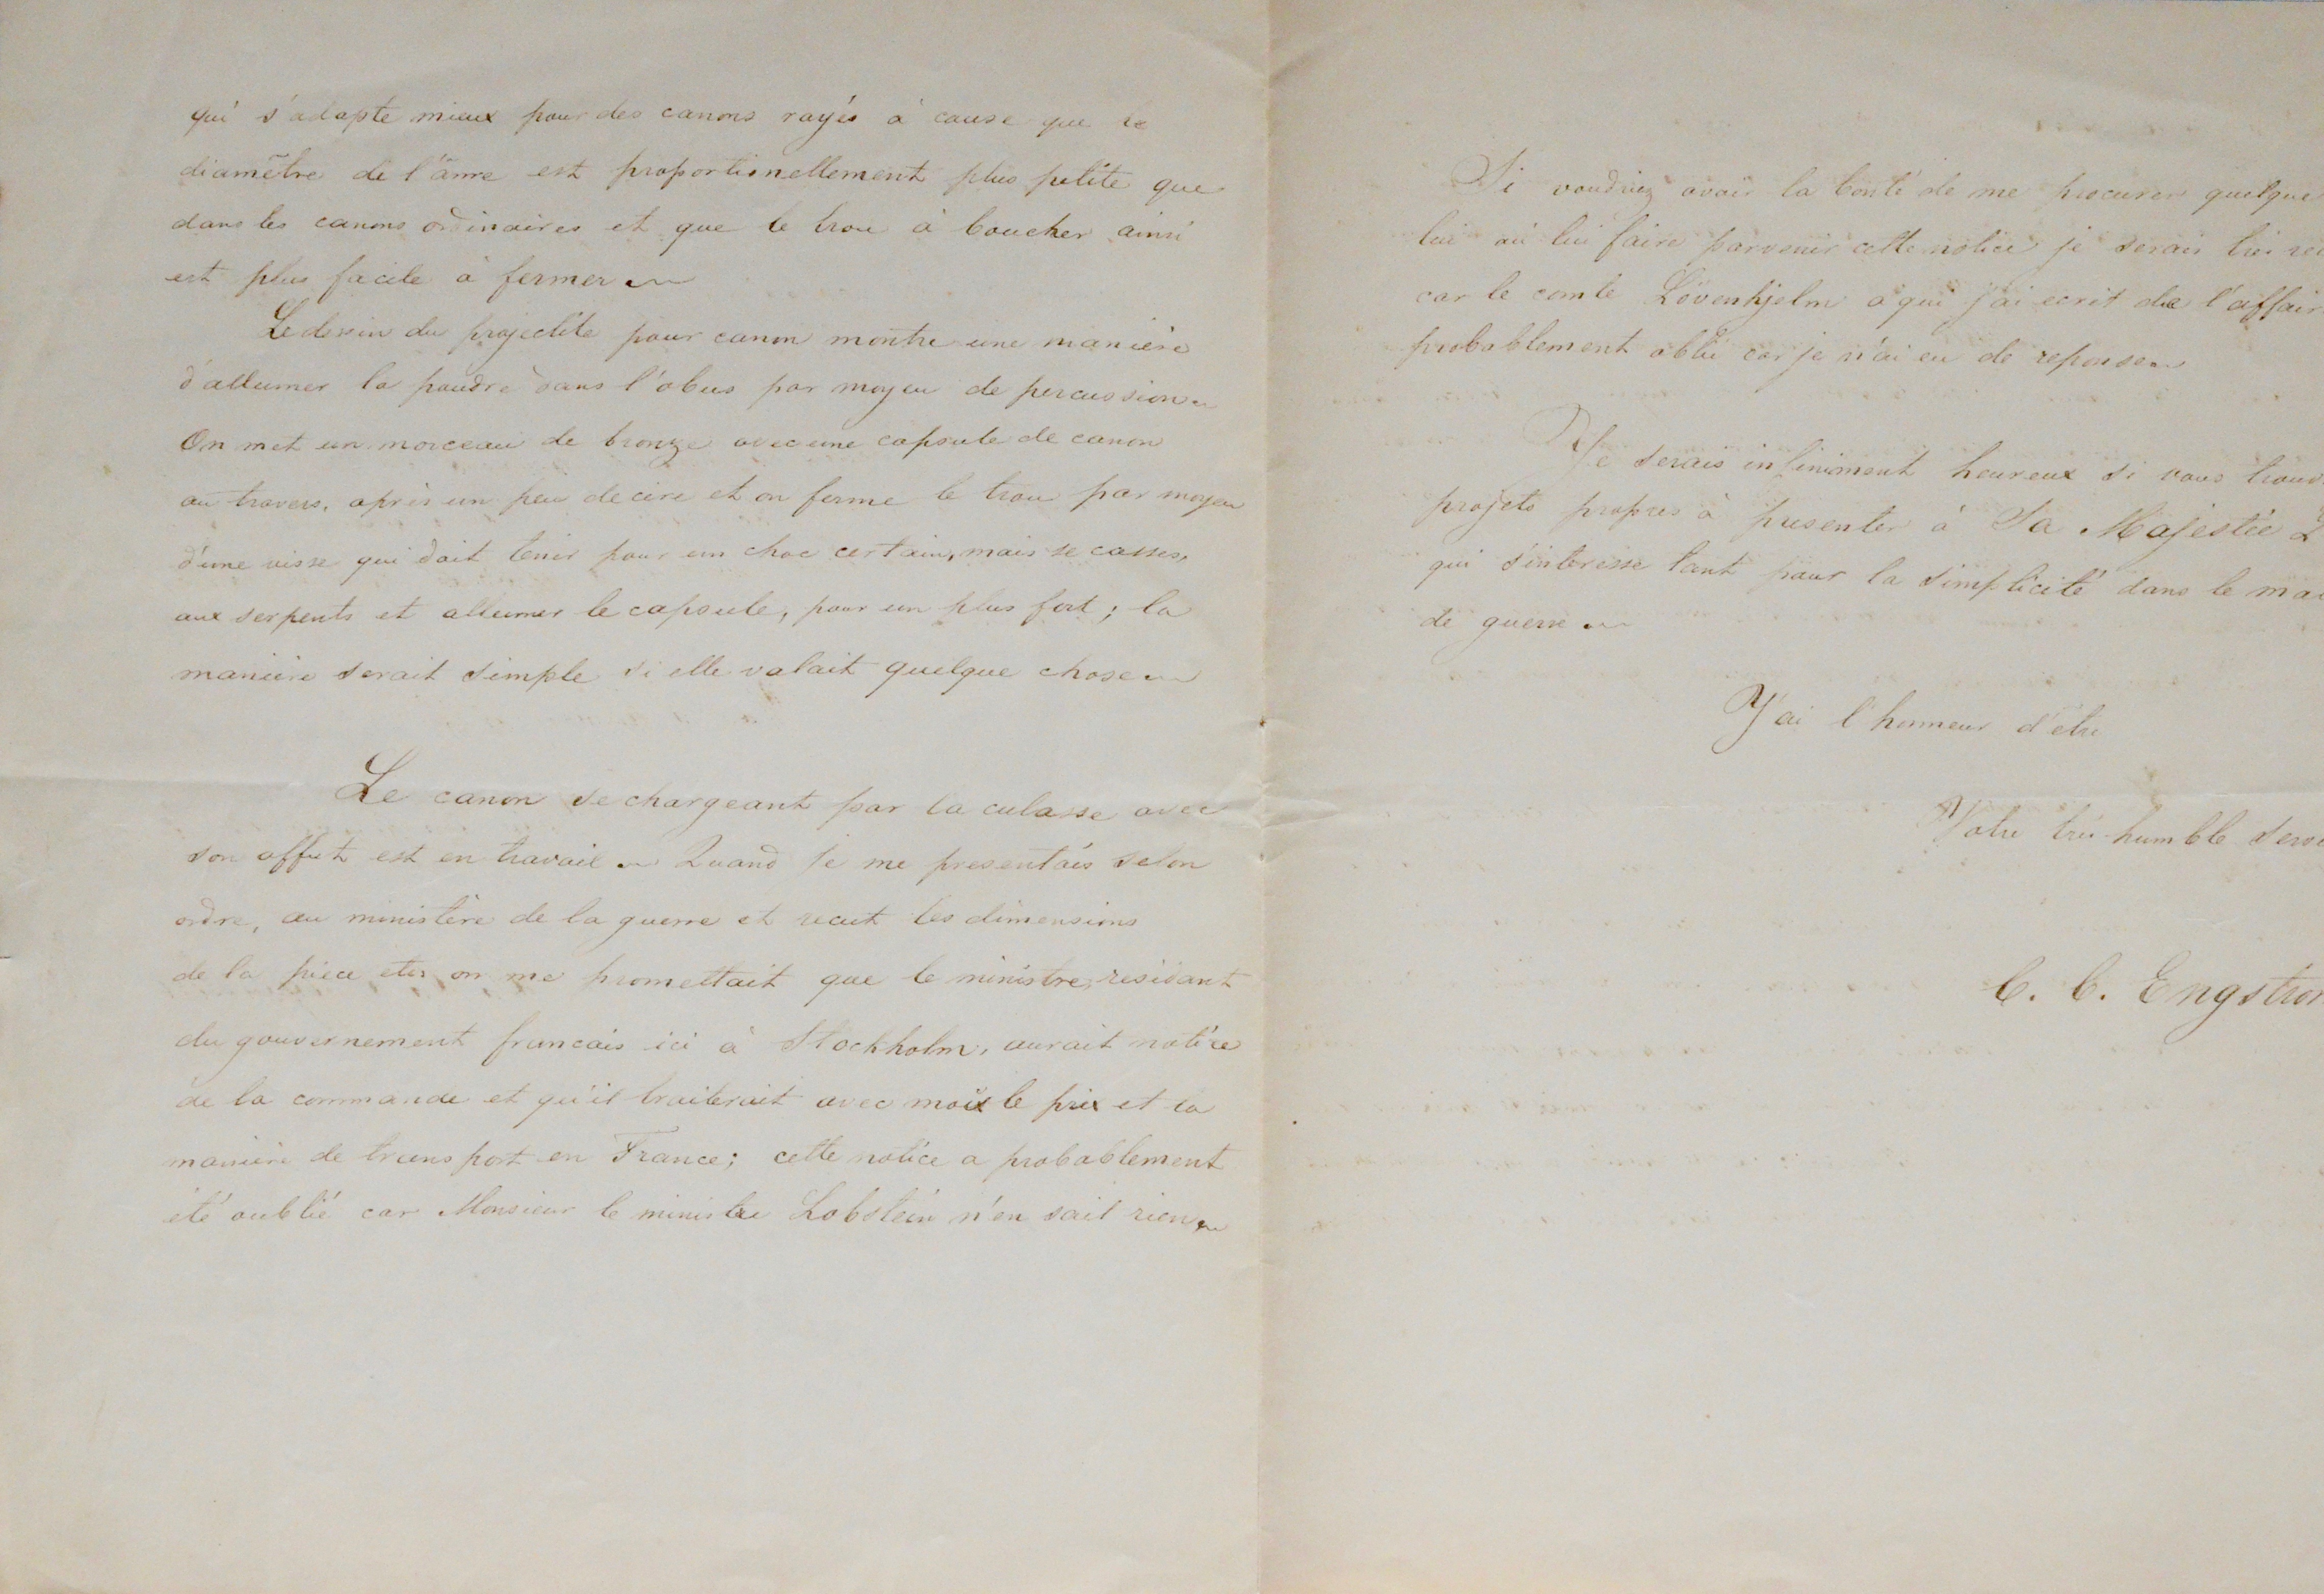 qui s'adapte mieux pour des canons rayés à cause que le
diamètre de l'âme est proportionellement plus petite que
dans les canons ordinaires et que le trou à boucher ainsi
est plus facile à fermer
Le dessin du projectile pour canon montre une manière
d'allumer la poudre dans l'obus par moyen de percussion
On met un morceau de bronze avec une capsule de canon
au travers, après un peu de cire et on ferme le trou par moyen
d'une visse qui doit tenir pour un choc certain, mais se casses,
aux serpents et allumer le capsule, pour un plus fort; la
manière serait simple si elle valait quelque chose
Le canon se chargeant par la culasse avec
son affut est en travail Quand je me presentais selon
ordre, au ministère de la guerre et recut les dimensions
de la piece on me promettait que le ministre, residant
du gouvernement francais ici à Stockholm, aurait notice
de la commande et qu'il traiterait avec moi le prix et la
manière de transport en France; cette notice a probablement
été oublié car Monsieur le ministre Lobstein n'en sait rien
Si voudriez avoir la bonté de me procurer quelque
lui où lui faire parvenir cette notice je serais très
car le comte Lövenhjelm à qui j'ai ecrit de l'affair
probablement oblié car je n'ai eu de reponse
Je serais infiniment heureux si vous trouv
projets propres à presenter à Sa Majestée
qui s'interesse tant pour la simplicité dans le ma
de guerre
J'ai l'honneur d'etre
Votre très-humble serv
C. C. Engstrom